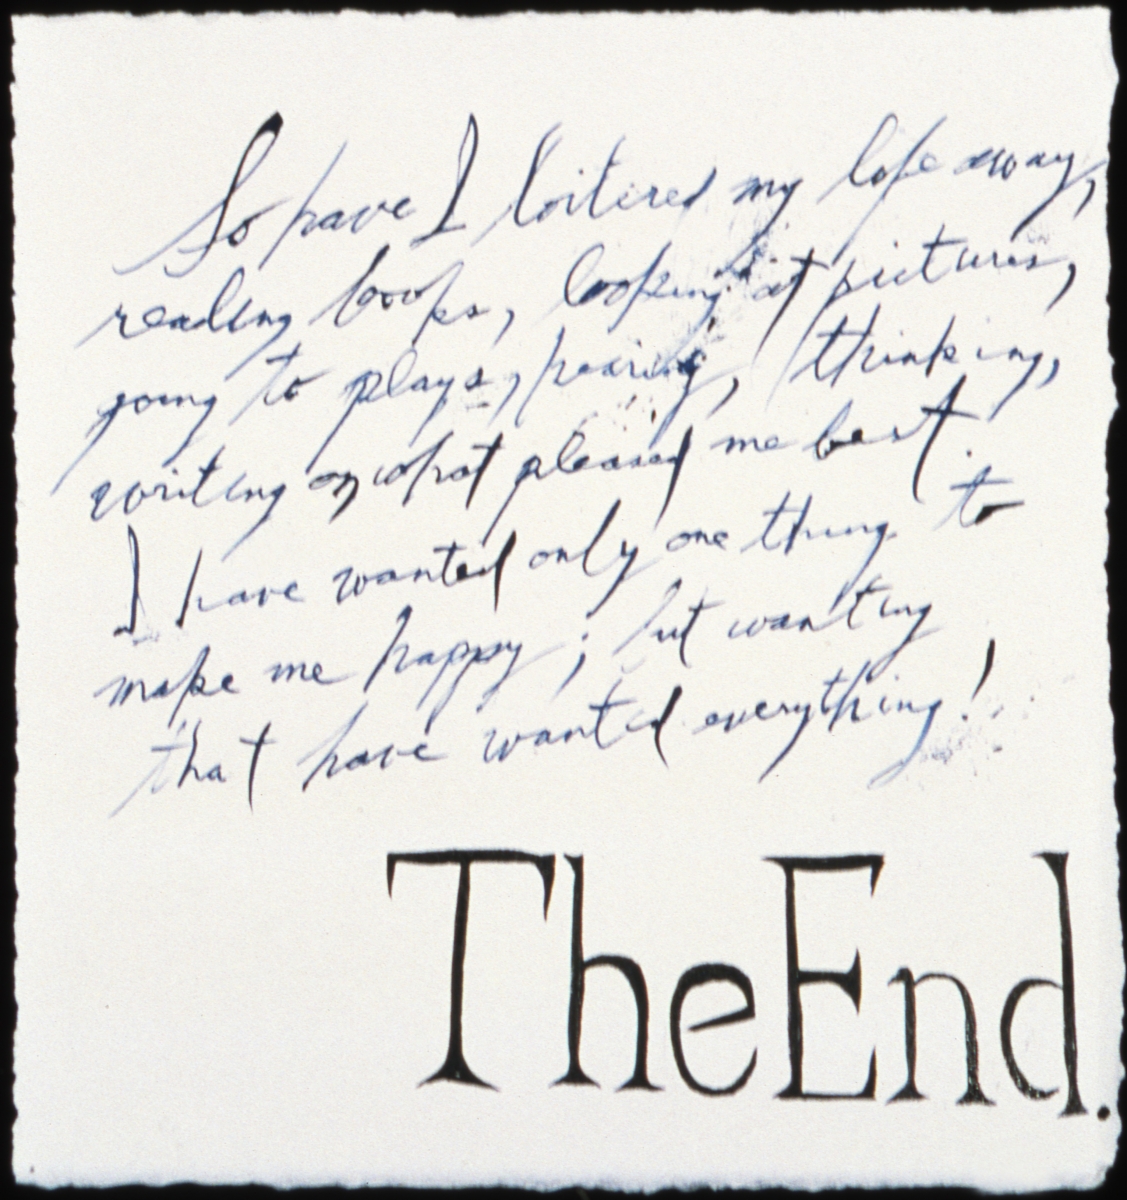 So have I loitered my life away,
reading books, looking at pictures,
going to plays, hearing, thinking,
writing on what pleased me best.
I have wanted only one thing to
make me happy; but wanting
that have wanted everything!
The End.